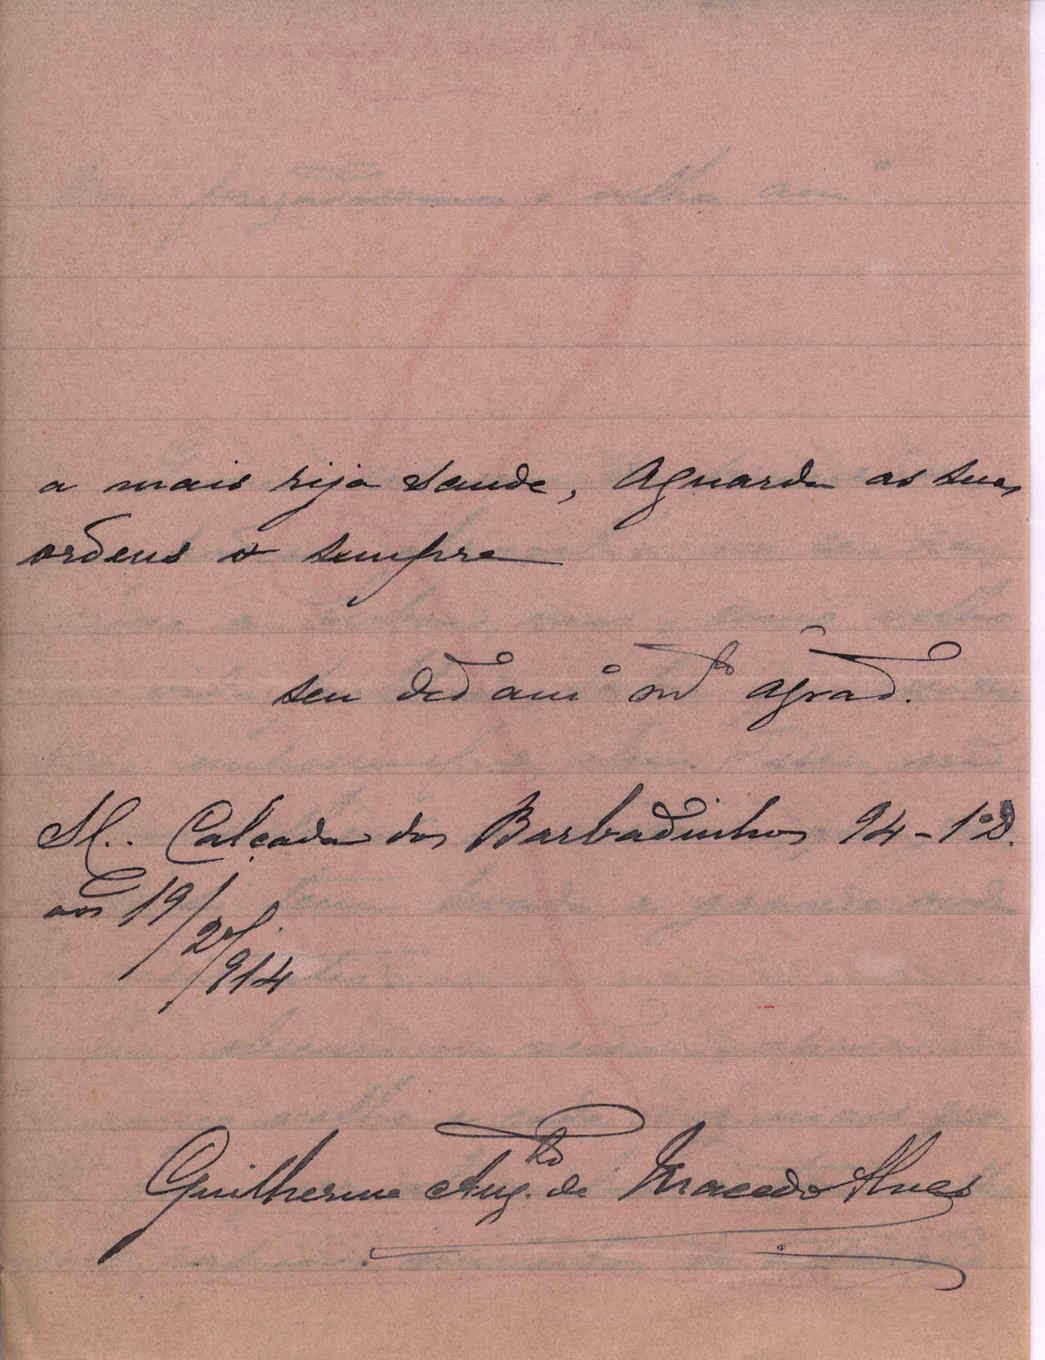 a mais rija saude, aguarda as suas
ordens o sempre
seu dedº amº mtº agradº.
Calçada dos Barbadinhos, 94-1º D.
aos 19/2º/914
Guilherme Augto de Macedo Alves